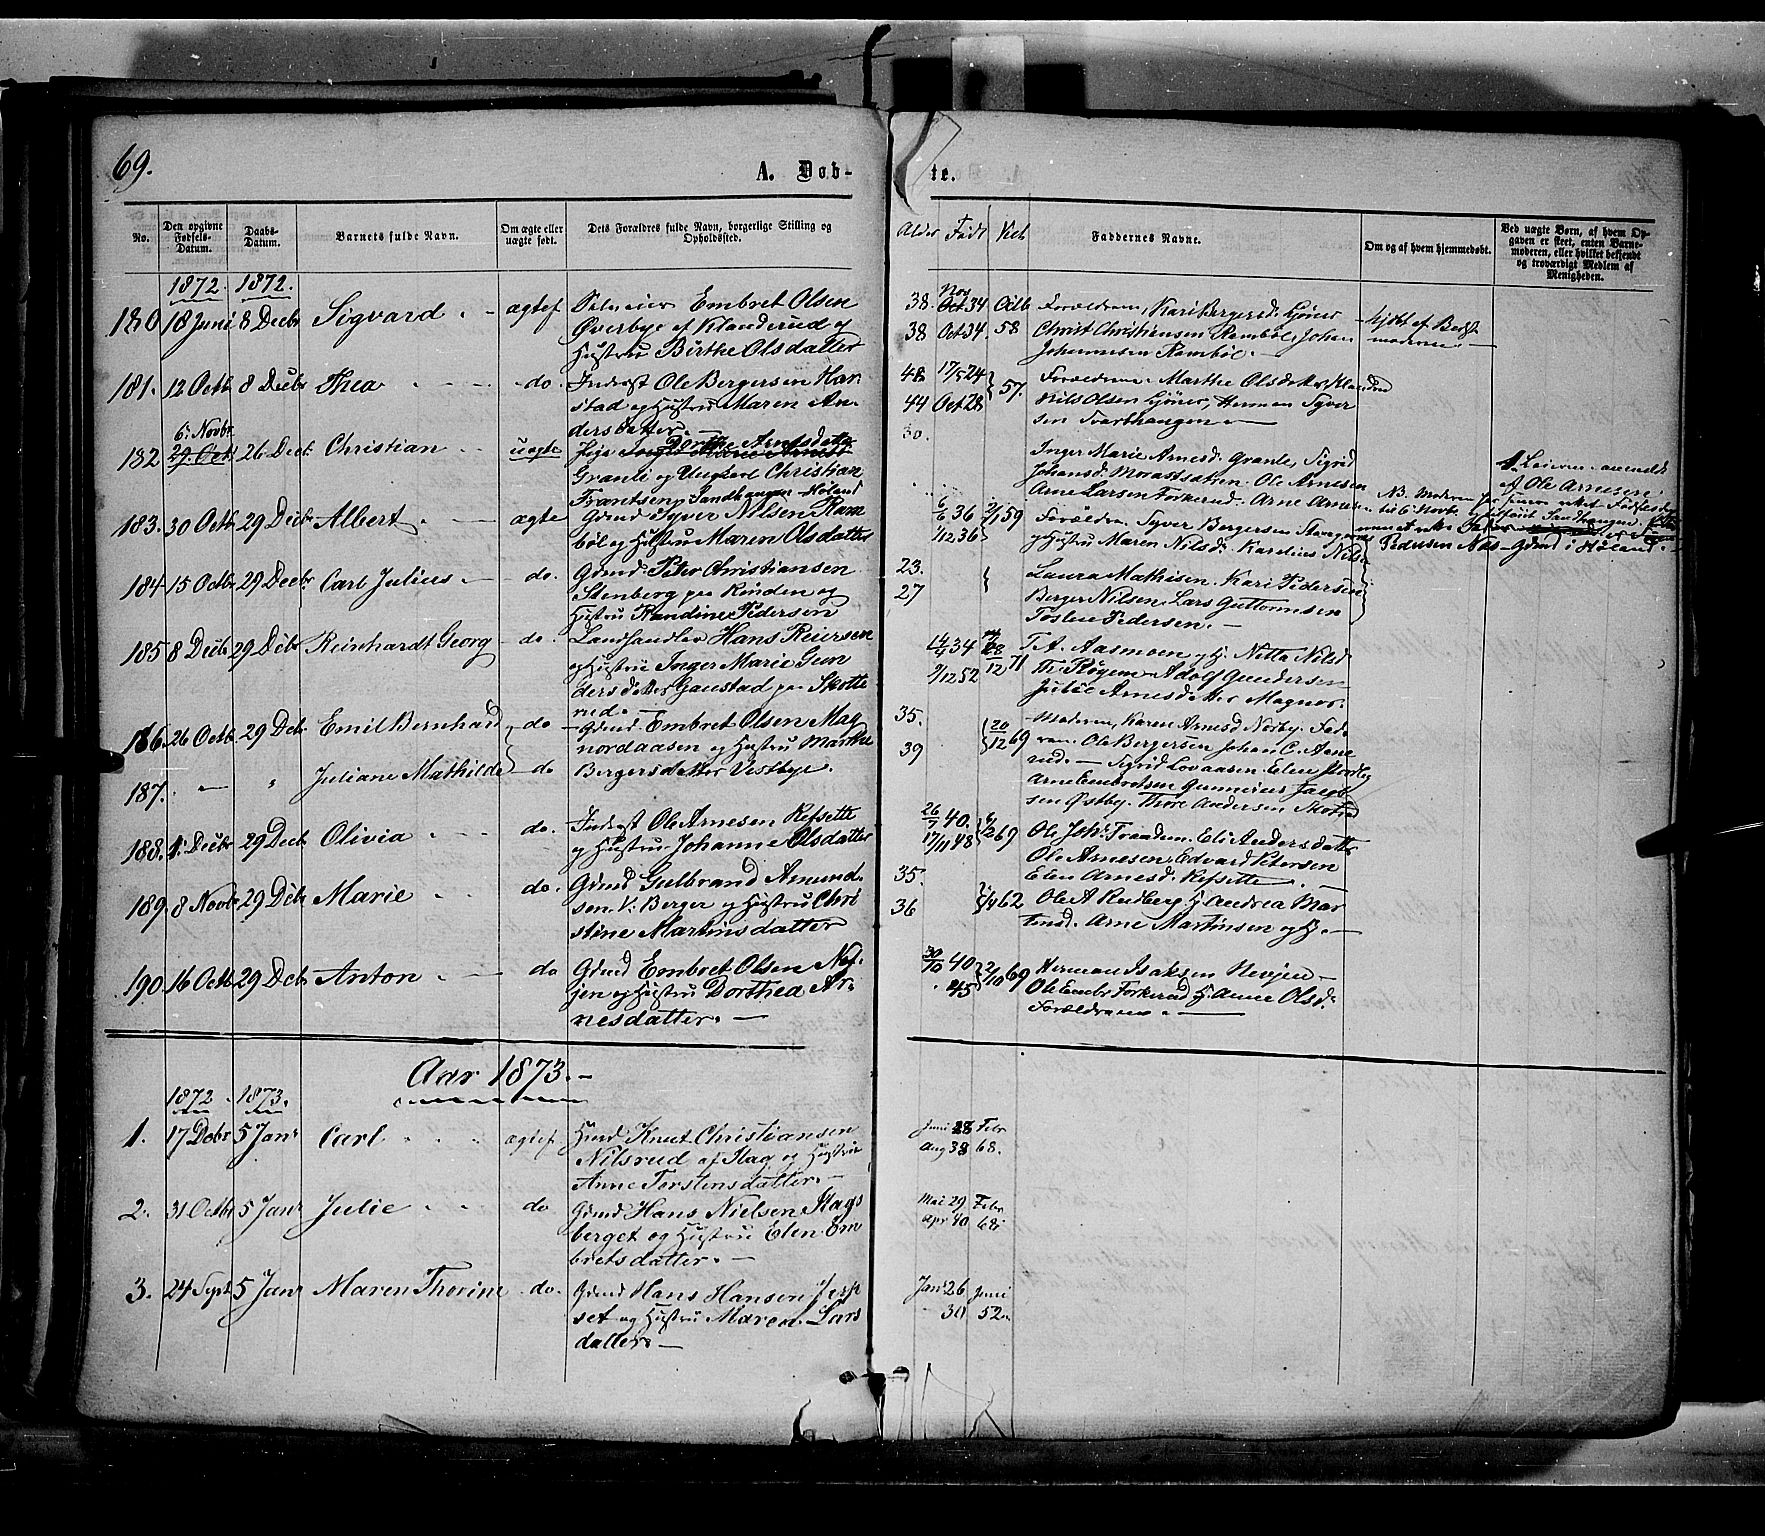 69.
A. Døb-
te.
No.
Den opgivne Fødsels-Datum.
Daabs-Datum.
Barnets fulde Navn.
Om ægte eller uægte født.
Dets Forældres fulde Navn, borgerlige Stilling og Opholdssted.
Alder
Født
Viet
Faddernes Navne.
Om og af hvem hjemmedøbt.
Ved uægte Børn, af hvem Opgaven er skeet, enten Barnemoderen, eller hvilket bekjendt og troværdigt Medlem af Menigheden.
1872. 1872.
180 18 Juni 8 Decbr Sigvard ægtef Embret Olsen
Øverbye af Klanderud og
Hustru Birthe Olsdatter
38. Nov Oct 34
38 Oct 34. 58
Forældrene, Kari Bergersd. Gjører
Christ Christiansen Rambøl, Johan
Johannesen Rambøl.
181. 12 Octb 8 Decbr Thea do. Inderst Ole Bergersen Har
stad og Hustru Maren An
dersdatter
48 17/5 24
44 Oct 28 57.
Forældrene. Marthe Olsdatter
Nils Olsen Gjører, Herman Syver
sen Svarthaugen
6. Novbr
182 29. Oct 26 Dec Christian uægte Pige Dorthe Arnesdatter
Granli og Ungkarl Christian
Frantsen Sandhaugen Høland
30.
Inger Marie Arnesd. Granle, Sigrid
Johansd. Morastsætren. Ole Arnesen
Arne Larsen Forkerud. Arne Arnesen
af Ole Arnesen
183. 30 Octb 29 Decbr Albert ægte Gmd Syver Nilsen Ram
bøl og Hustru Maren Olsdatter
6/6 36
1/12 36 59
Forældrene Syver Bergersen
og Hustru Maren Nilsd. Karelius Nilsen
Pedersen Næs Gmd i Høland.
184 15 Octbr 29 Decbr Carl Julius do. Gmd Peter Christiansen
Stenberg paa Rinden og
Hustru Randine Pedersen
23.
27
Laura Mathisen. Kari Pedersen
Berger Nilsen, Lars Guttormsen
Tosten Pedersen.
185 8 Decbr 29 Decbr Reinhardt Georg do. Landhandler Hans Reiersen
og Hustru Inger Marie Gun
dersdatter Gaustad paa Skotte
rud
14/4 34
9/12 52
28/12 71
T. A. Aasmoen og H. Netta Nilsd
Th. Røgem Adolf Gundersen
Julie Arnesdatter Magnor.
186. 26 Octb 29 Decbr Emil Bernhard do Gmd Embret Olsen Mag
nordaasen og Hustru Marthe
35.
39
20/12 69
Moderen, Karen Arnesd Norby. Fad
ren Ole Bergersen Johan C. Aane
rud. Sigrid Lovaasen. Elen Nordby
187. Juliane Mathilde do Bergersdatter Vestbye.
Arne Embretsen Gunnerius Jacob
sen Østby. Thore Andersen
188. 1. Decbr 29 Decbr Olivia do. Inderst Ole Arnesen Refsette
og Hustru Johanne Olsdatter
26/7 40.
17/11 48 69
Ole Johs. Fraadem. Eli Andersdatter
Ole Arnesen. Edvard Petersen
Elen Arnesd. Refsette.
189. 8 Novbr 29 Decbr Marie do. Gmd Gulbrand Amund
sen V. Berger og Hustru Chri
stine Martinisdatter
35.
36
62
Ole A Rudberg H. Andrea Mar
tensd. Arne Martinsen og H.
190 16 Octb 29 Decbr Anton do Gmd Embret Olsen Nøf
jen og Hustru Dorthea Ar
nesdatter.
30/10 40
45
2/10 69
Herman Isaksen Nevjen
Ole Embr Forkerud H. Anne Olsd.
Forældrene.
Aar 1873.
1872. 1873.
1. 17 Dcbr 5 Janr Carl ægtef Gmd Knut Christiansen
Nilsrud af Flag og Hustru
Anne Torstensdatter.
Juni 28 Febr
Aug 38 68.
2. 31 Octbr 5 Janr Julie do Gmd Hans Nielsen Flags
berget og Hustru Elen Em
bretsdatter.
Mai 29 Febr
Apr 40 68
3. 24 Sept 5 Janr Maren Thorine do. Gmd Hans Hansen Jerp
set og Hustru Maren Lars
datter.
Janr 26 Juni
30 52.